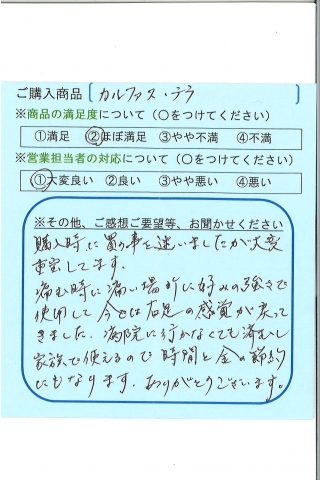 ご購入商品 〔カルファス・テラ
※商品の満足度について（○をつけてください）
①満足 ②ほぼ満足 ③やや不満 ④不満
※営業担当者の対応について（○をつけてください）
①大変良い ②良い ③やや悪い ④悪い
※その他、ご感想ご要望等、お聞かせください
購入時に買う事を迷いましたが大変
重宝してます。
痛む時に痛い場所に好みの強さで
使用して今では右足の感覚が戻って
きました。病院に行かなくても済むし
家族で使えるので時間と金の節約
にもなります。ありがとうございます。